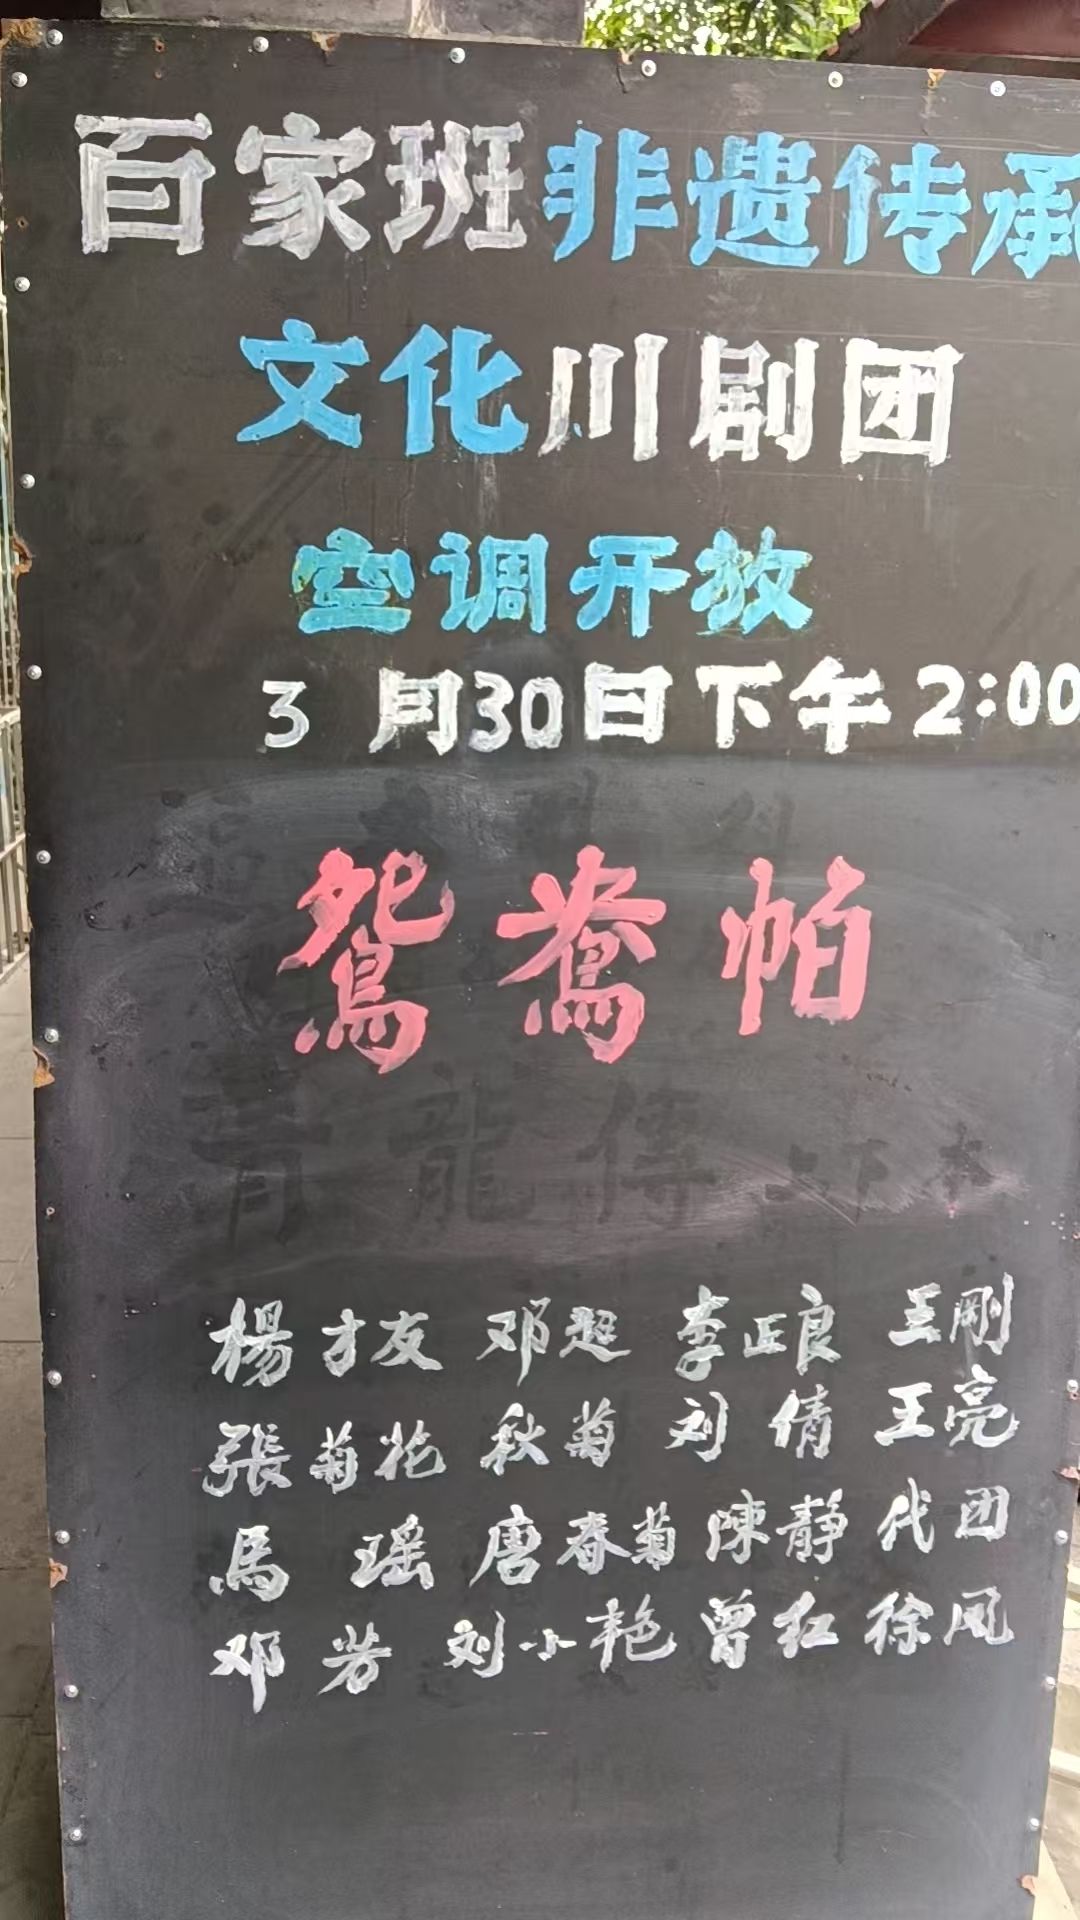 百家班非遗传承
文化川剧团
空调开放
3月30日下午2:00
鸳鸯帕
青龍傳 上下本
楊才友 邓超 李正良 王刚
張菊花 秋菊 刘倩 王亮
馬瑶 唐春菊 陳静 代团
邓芳 刘小艳 曾红 徐凤